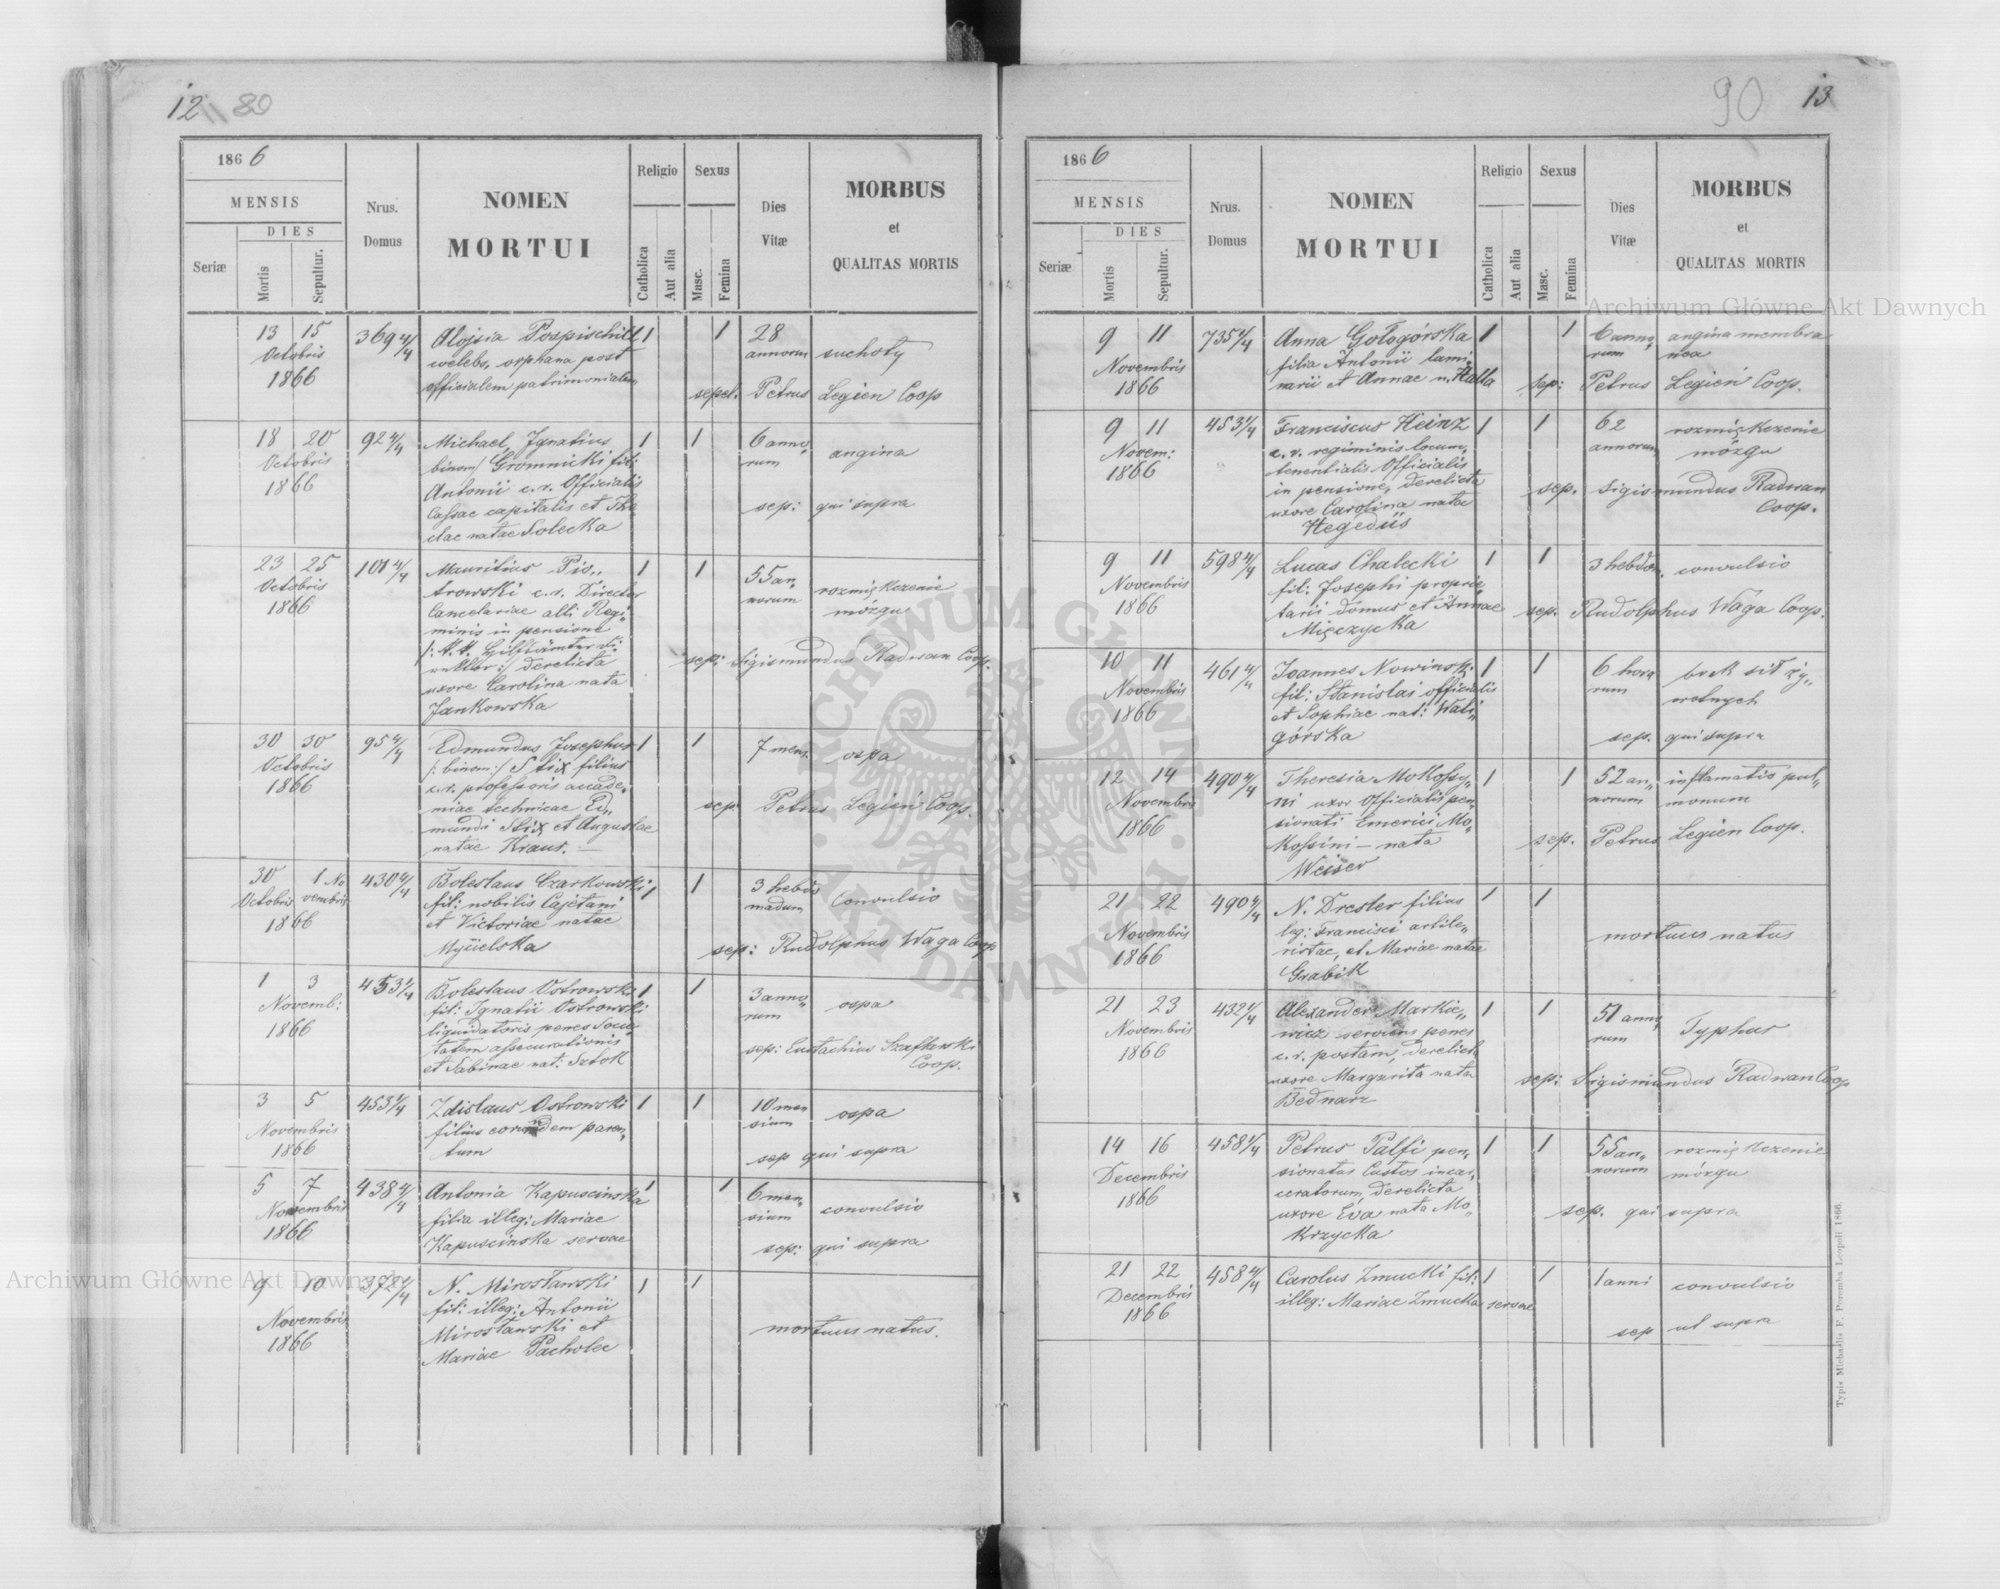 12 80
1866
MENSIS
DIES
Seriæ
Mortis
Sepultur.
Nrus.
Domus
NOMEN
MORTUI
Religio
Catholica
Aut alia
Sexus
Masc.
Femina
Dies
Vitæ
MORBUS
et
QUALITAS MORTIS
13 15 369 4/4 Aloisia Pospischill 1 1 28
Octobris coelebs, orphana post annorum suchoty
1866 officialem patrimonialem
sepel. Petrus Legien Coop
18 20 92 4/4 Michael Ignatius 1 1 6 anno
Octobris binom/ Gromnicki fil: rum angina
1866 Antonii c.r. Officialis
Cassae capitalis et The sep: qui supra
clae natae Solecka
23 25 101 4/4 Mauritius Pio,, 1 1 55 an,
Octobris trowski c.r. Director norum rozmiękczenie
1866 Cancelariae alti Regi mózgu
minis in pensione
derelicta sep: Sigismundus Radwan Coop.
uxore Carolina nata
Jankowska
30 30 95 4/4 Edmundus Josephus 1 1 7 men. ospa
Octobris /: binom:/ Stix filius
1866 c.r. professoris acade,
miae technicae Ed,, sep Petrus Legien Coop.
mundi Stix et Augustae
natae Kraus. —
30 1 No 430 4/4 Boleslaus Czarkowski 1 1 3 hebdo
Octobris vembris fil: nobilis Cajetani madum Convulsio
1866 et Victoriae natae
Mycielska sep: Rudolphus Waga Coop
1 3 453 4/4 Boleslaus Ostrowski 1 1 3 anno
Novemb: fil: Ignatii Ostrowski rum ospa
1866 liquidatoris penes Socie
tatem assecurationis sep: Eustachius Szafkowski
et Sabinae nat: Sztok Coop.
3 5 453 4/4 Zdislaus Ostrowski 1 1 10 men
Novembris filius eorundem paren, sium ospa
1866 tum sep qui supra
5 7 438 4/4 Antonia Kapuscinska 1 1 6 men
Novembris filia illeg: Mariae sium convulsio
1866 Kapuscinska servae sep: qui supra
9 10 372 4/4 N. Mirosławski 1 1
Novembris fil: illeg: Antonii
1866 Mirosławski et mortuus natus.
Mariae Pacholec
90 13
1866
MENSIS
DIES
Seriæ
Mortis
Sepultur.
Nrus.
Domus
NOMEN
MORTUI
Religio
Catholica
Aut alia
Sexus
Masc.
Femina
Dies
Vitæ
MORBUS
et
QUALITAS MORTIS
9 11 735 4/4 Anna Gołogórska 1 1 6 anno, angina membra
Novembris filia Antonii lami, rum nea
1866 narii et Annae n. Halla sep: Petrus Legien Coop.
9 11 453 4/4 Franciscus Heinz 1 1 62 rozmiękczenie
Novem: c.r. regiminis locum, annorum mózgu
1866 tenentialis Officialis
in pensione, derelicta sep. Sigismundus Radwan
uxore Carolina nata Coop.
Hegedüs
9 11 598 4/4 Lucas Chalecki 1 1 3 hebdom. convulsio
Novembris fil: Josephi proprie
1866 tarii domus et Annae sep. Rudolphus Waga Coop.
Mięczycka
10 11 461 4/4 Joannes Nowinski 1 1 6 hora brak sił ży,,
Novembris fil: Stanislai officialis rum wotnych
1866 et Sophiae nat: Wali,
górska sep. qui supra
12 14 490 4/4 Theresia Mokossy,, 1 1 52 an,, inflamatio pul,,
Novembris ni uxor Officialis pen, norum monum
1866 sionati Emerici Mo,
kossini — nata sep. Petrus Legien Coop.
Weiser
21 22 490 4/4 N. Drester filius 1 1
Novembris leg: Francisci artile, mortuus natus
1866 ristae, et Mariae natae
Grabik
21 23 432 4/4 Alexander Markie,, 1 1 51 anno, Typhus
Novembris wicz serviens penes rum
1866 c.r. postam, derelict
uxore Margarita nata sep: Sigismundus Radwan Coop
Bednarz
14 16 458 4/4 Petrus Palfi pen, 1 1 55 an,, rozmiękczenie
Decembris sionatus Custos incar, norum mózgu
1866 ceratorum, derelicta
uxore Eva nata Mo, sep. qui supra
krzycka
21 22 458 4/4 Carolus Zmucki fil: 1 1 1 anni convulsio
Decembris illeg: Mariae Zmucka servae
1866 sep ut supra
Typis Michaelis F. Poremba Leopoli 1866.
Archiwum Główne Akt Dawnych
Archiwum Główne Akt Dawnych
ARCHIWUM GŁÓWNE AKT DAWNYCH